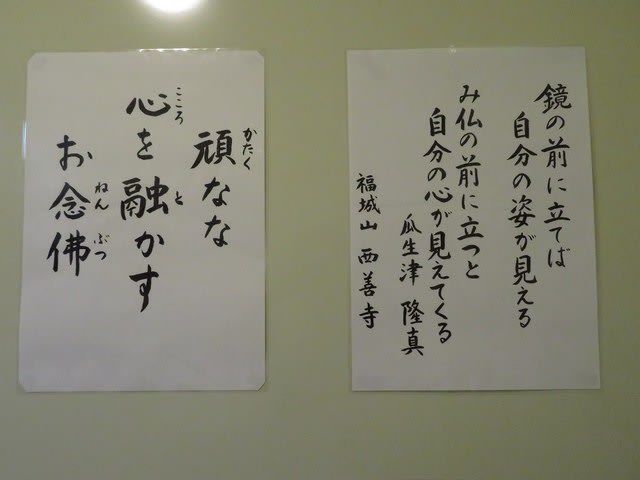 鏡の前に立てば
自分の姿が見える
み仏の前に立つと
自分の心が見えてくる
瓜生津 隆真
福城山 西善寺
頑なな
かたく
心を融かす
こころ と
お念佛
ねん ぶつ